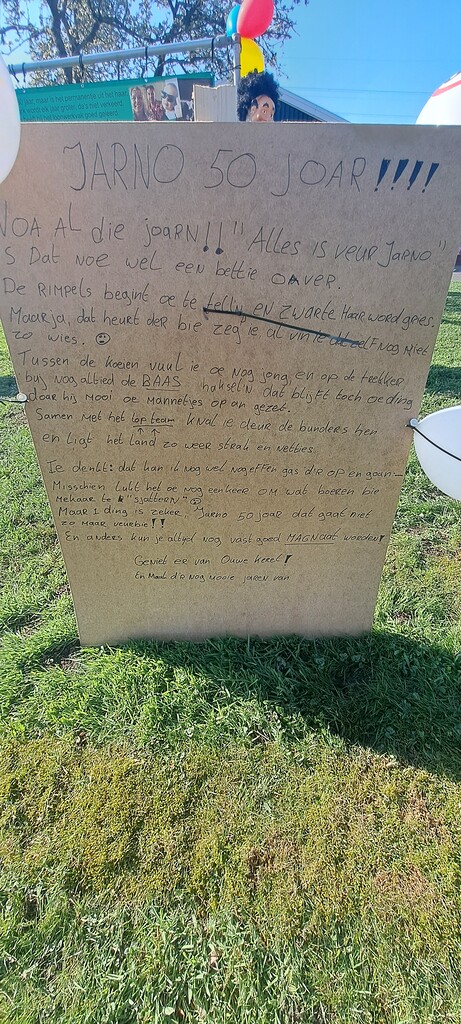 jaar, maar is het permanentje uit het haar
JARNO 50 JOAR !!!!
NOA AL die joarn!! "Alles is veur Jarno"
S Dat noe wel een bettie oaver.
De RIMPELS begint oe te telln EN ZWARTE HAAR WORD gries.
Maar ja, dat heurt der bie zeg ie, al vin ie dat zelf NOG NIET
zo wies. ☹
Tussen de koeien vuul ie oe nog jong, en op de trekker
bij nog altied de BAAS hakseln dat blijft toch oe ding
daar hij mooi oe mannetjes op an gezet.
Samen met het top team knal ie deur de bunders hen
en ligt het land zo weer strak en netties.
Ie denkt: dat kan ik nog wel nog effen gas d'r op en goan:—
Misschien lukt het oe nog een keer om wat boeren bie
mekaar te "sjotteern" ☺
Maar 1 ding is zeker, Jarno 50 joar dat gaat niet
zo maar veurbie!!
En anders kun je altijd nog vast goed MAGNAAT worden!
Geniet er van Ouwe kerel!
En Maak d'r nog mooie jaren van